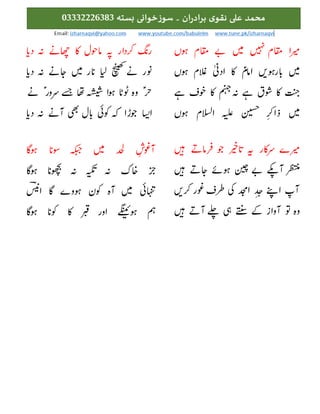 محمد علی نقوی برادران ۔ سوزخوانی بستہ 03332226383
Email: izharnaqvi@yahoo.com www.youtube.com/babulnlm www.tune.pk/izharnaqvi
میرا مقام نہیں میں بے مقام ہوں
میں بارہویں امام کا ادنیٰ غلام ہوں
جنت کا شوق ہے نہ جہنم کا خوف ہے
میں ذاکرِ حسین علیہ السلام ہوں
رنگ کردار پہ ماحول کا چھانے نہ دیا
نور نے کھینچ لیا نار میں جانے نہ دیا
حرؑ وہ ٹوٹا ہوا شیشہ تھا جسے سرورؑ نے
ایسا جوڑا کہ کوئی بال بھی آنے نہ دیا
میرے سرکار یہ تاخیر جو فرماتے ہیں
منتظر آپکے بے چین ہوئے جاتے ہیں
آپ اپنے جدِ امجد کی طرف غور کریں
وہ تو آواز کے سنتے ہی چلے آتے ہیں
آغوشِ لحد میں جبکہ سونا ہوگا
جز خاک نہ تکیہ نہ بچھونا ہوگا
تنہائی میں آہ کون ہووے گا انیسؔ
ہم ہوئینگے اور قبر کا کونا ہوگا